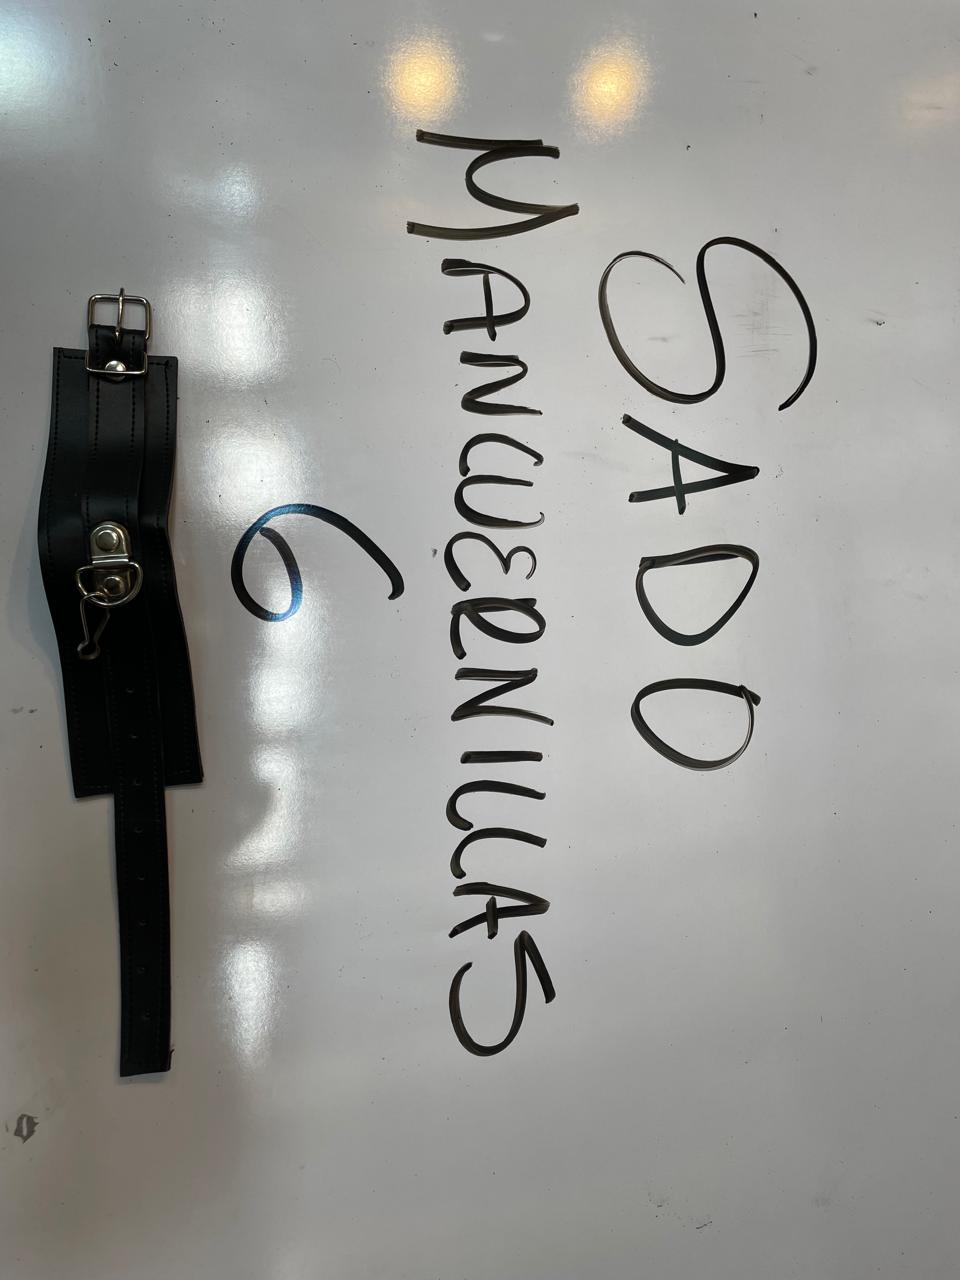 SADO
MANCUERNILLAS
6